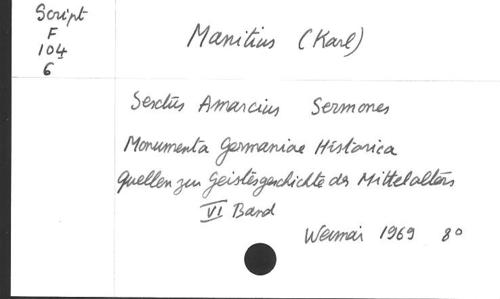 Script
F
104
6
Manitius (Karl)
Sextus Amarcius Sermones
Monumenta Germaniae Historica
Quellen zur Geistesgeschichte des Mittelalters
VI Band
Weimar 1969 8°